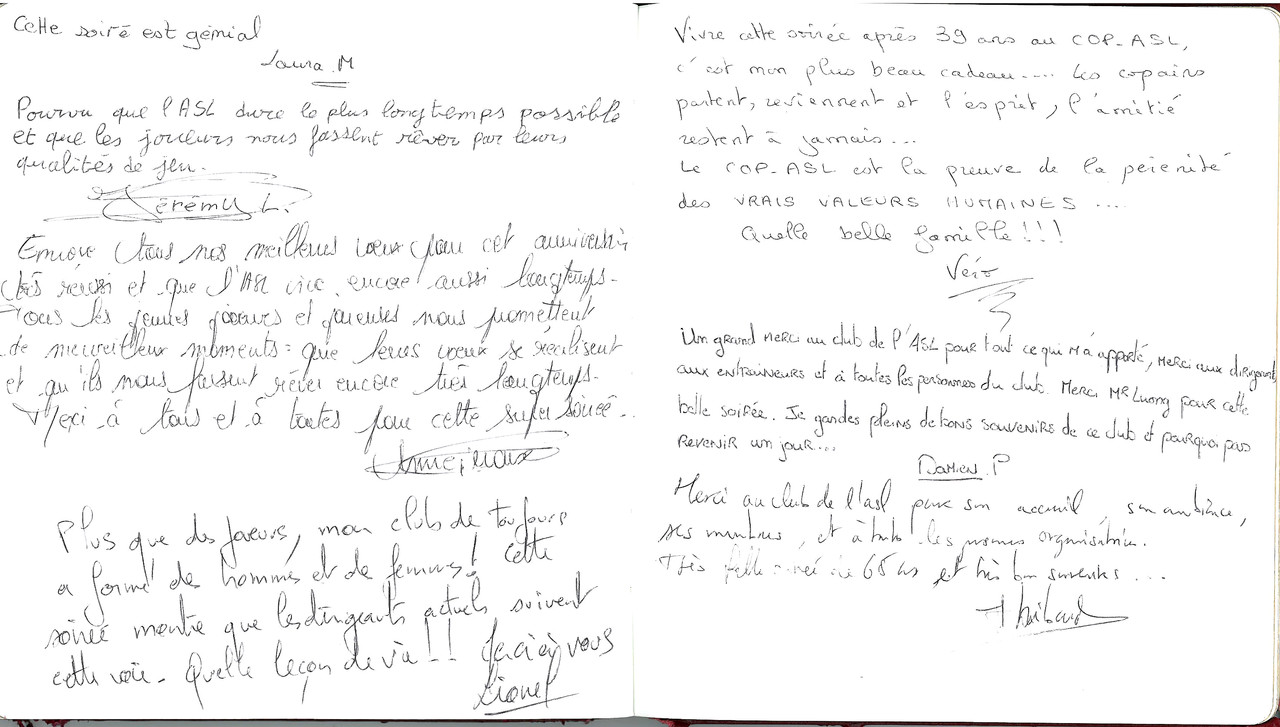 Cette soiré est génial
Laura.M
Pourvu que l'ASL dure le plus longtemps possible
et que les joueurs nous fassent rêver par leurs
qualités de jeu.
Jérémy L.
Encore tous nos meilleurs voeux pour cet anniversaire
très réussi et que l'ASL vive encore aussi longtemps.
Tous les jeunes joueurs et joueuses nous promettent
de merveilleux moments : que leurs voeux se réalisent
et qu'ils nous fassent rêver encore très longtemps.
Merci à tous et à toutes pour cette super soirée.
Plus que des joueurs, mon club de toujours
a formé des hommes et de femmes! Cette
soirée montre que les dirigeants actuels suivent
cette voie. Quelle leçon de vie!! Merci à vous
Lionel
Vivre cette soirée après 39 ans au COP-ASL,
c'est mon plus beau cadeau.... Les copains
partent, reviennent et l'esprit, l'amitié
restent à jamais...
Le COP-ASL est la preuve de la pérennité
des VRAIS VALEURS HUMAINES ....
Quelle belle famille!!!
Véro
Un grand merci au club de l'ASL pour tout ce qui m'a apporté, merci aux dirigeants
aux entraineurs et à toutes les personnes du club. Merci Mr Luong pour cette
belle soirée. Je gardes pleins de bons souvenirs de ce club et pourquoi pas
revenir un jour...
Damien.P
Merci au club de l'asl pour son accueil, son ambiance,
ses membres, et à toutes les personnes organisatrices.
Très belle soirée de 65 ans et très bon souvenirs ...
Thibaud